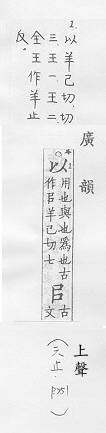 2.以羊己切、切
三、王一、王二、
全王作羊止
反。
廣韻
以用也與也爲也古
作㠯羊己切七
㠯古文
上聲
(六止. p251)